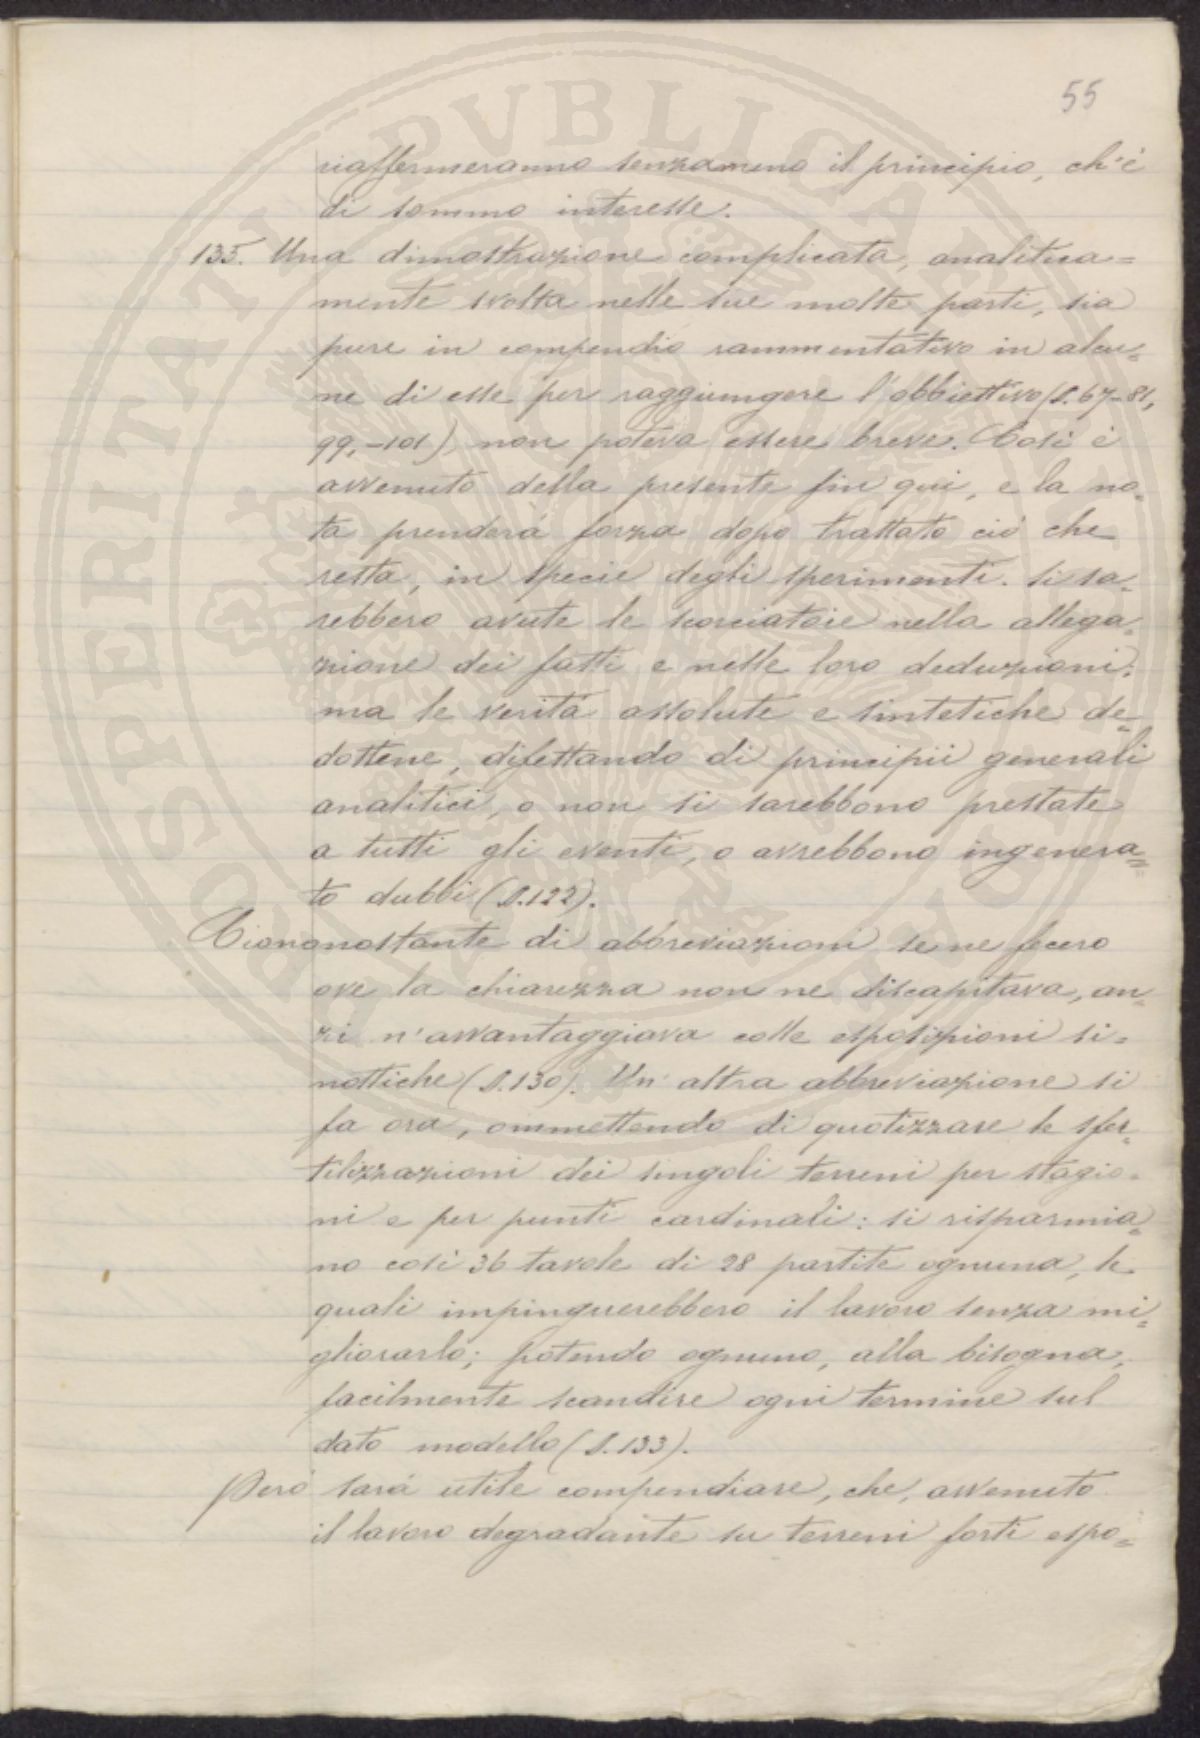 55
riaffermeranno senzameno il principio, ch'è
di sommo interesse.
135. Una dimostrazione complicata, analitica=
mente svolta nelle sue molte parti, sia
pure in compendio rammentativo in alcu=
ne di esse per raggiungere l'obbiettivo (S. 67-81,
99,-101), non poteva essere breve. Così è
avvenuto della presente fin qui, e la no=
ta prenderà forza dopo trattato ciò che
resta, in specie degli sperimenti. Si sa=
rebbero avute le scorciatoie nella allega=
zione dei fatti e nelle loro deduzioni:
ma le verità assolute e sintetiche de=
dottene, difettando di principii generali
analitici, o non si sarebbono prestate
a tutti gli eventi, o avrebbono ingenera=
to dubbi (S. 122).
Ciononostante di abbreviazioni se ne fecero
ove la chiarezza non ne discapitava, an=
zi n'avvantaggiava colle esposizioni si=
nottiche (S. 130). Un' altra abbreviazione si
fa ora, ommettendo di quotizzare le sfer=
tilizzazioni dei singoli terreni per stagio=
ni e per punti cardinali: si risparmia=
no così 36 tavole di 28 partite ognuna, le
quali impinguerebbero il lavoro senza mi=
gliorarlo; potendo ognuno, alla bisogna,
facilmente scandire ogni termine sul
dato modello (S. 133).
Però sarà utile compendiare, che, avvenuto
il lavoro degradante su terreni forti espo=
PROSPERITATI PVBLICAE